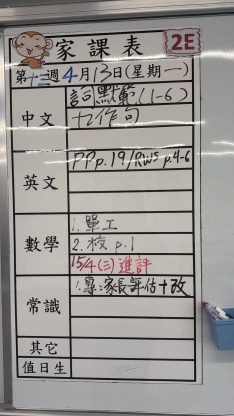 家課表
2E
第十三週4月13日(星期一)
中文
詞默範(1-6)
十乙作句
英文
PP p.19/RWS p.4-6
數學
1. 單工
2. 校 p.1
15/4(三)進評
常識
1. 專:家長評估+改
其它
值日生